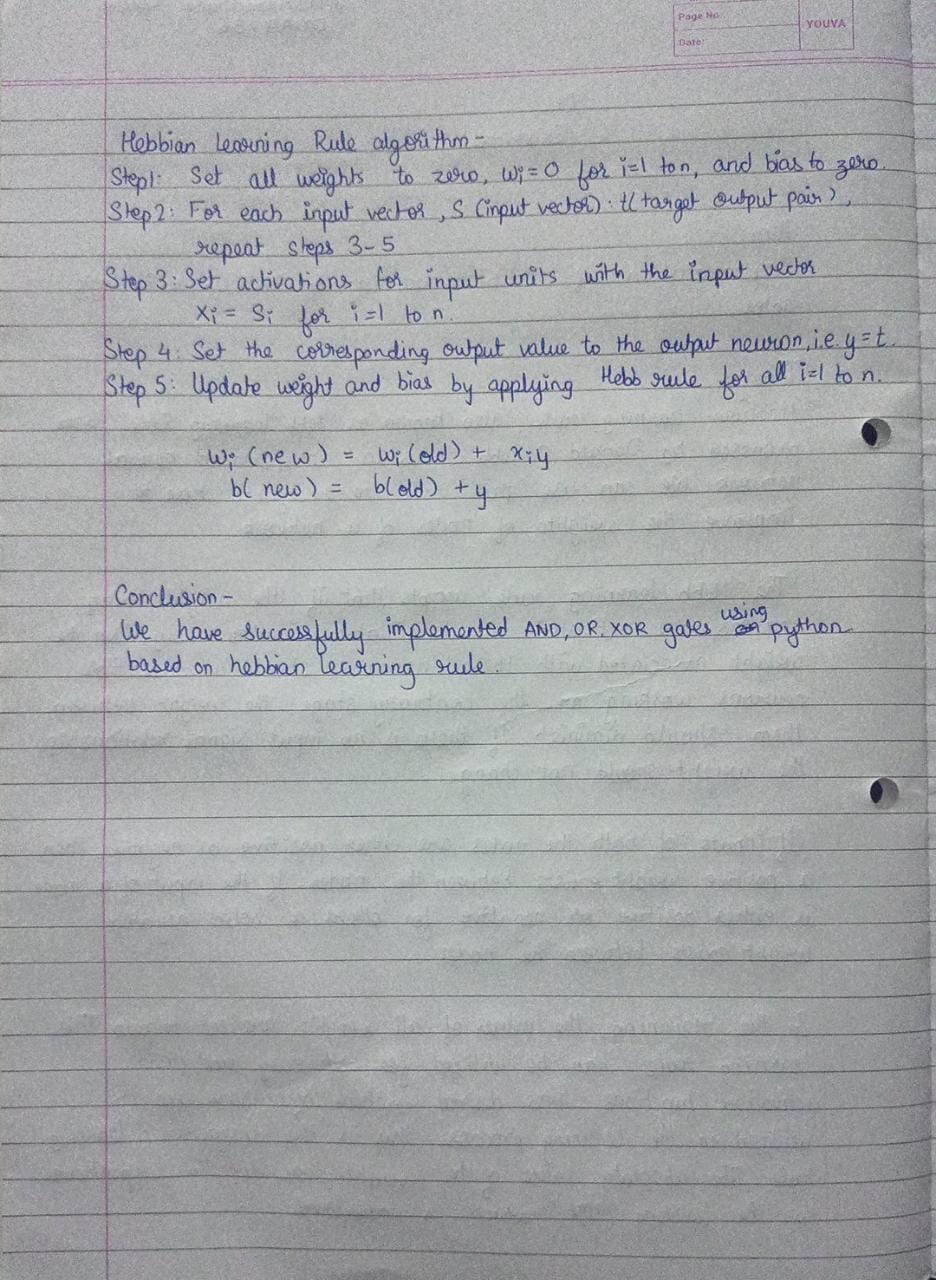 Page No.
Date:
YOUVA
Hebbian Learning Rule algorithm -
Step1: Set all weights to zero, wi = 0 for i=1 to n, and bias to zero.
Step 2: For each input vector, S (input vector) : t (target output pair),
repeat steps 3-5
Step 3: Set activations for input units with the input vector
Xi = Si for i=1 to n.
Step 4: Set the corresponding output value to the output neuron, i.e. y=t.
Step 5: Update weight and bias by applying Hebb rule for all i=1 to n.
wi (new) = wi (old) + xiy
b( new) = b(old) + y
Conclusion -
We have successfully implemented AND, OR, XOR gates using python
based on hebbian learning rule.